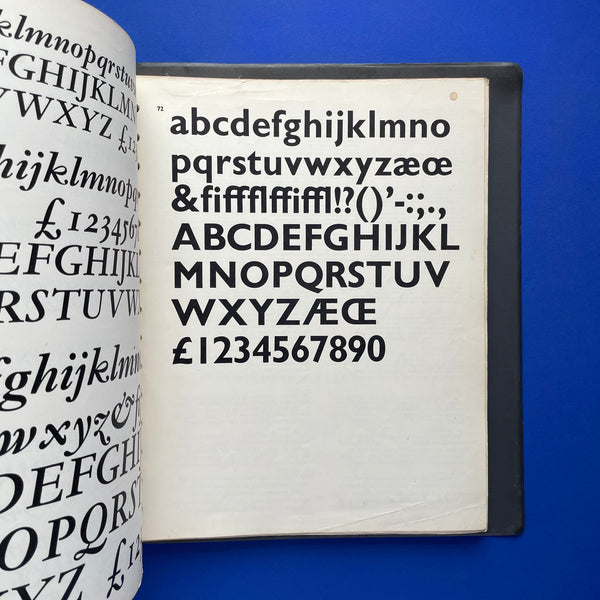 klmnopqrstu
FGHIJKLMN
WXYZ £12
hijklmnop
£1234567
EFGHIJKL
RSTUVWX
fghijklm
wxyz&
DEFGHI
OPQRST
YZ £12
72
abcdefghijklmno
pqrstuvwxyzæœ
&fiffflffiffl!?()’-:;.,
ABCDEFGHIJKL
MNOPQRSTUV
WXYZÆŒ
£1234567890